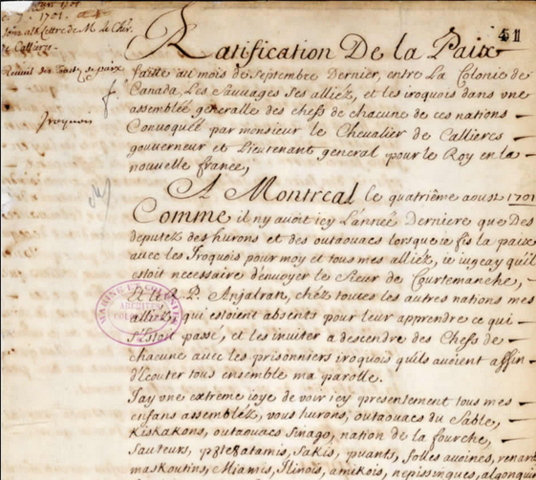 41
7. 1701.
Lettre de M. le Cher.
de Callieres
Iroquois
Ratification De la Paix
faitte au mois de septembre Dernier, entre La Colonie de
Canada, Les Sauvages Ses alliéz, et les iroquois dans vne
assemblée generalle des chefs de chacune de ces nations
Convoquée par monsieur le Chevalier de Callieres
gouverneur et Lieutenant general pour le Roy en la
nouvelle france,
A Montreal le quatriême aoust 1701
Comme il ny avoit icy L'année Derniere que Des
deputez des hurons et des outaouacs lorsque ie fis la paix
avec les Iroquois pour moy et tous mes alliéz, ie iugeay qu'il
estoit necessaire d'envoyer le Sieur de Courtemanche,
et le R. P. Anjalran, chéz toutes les autres nations mes
alliéz, qui estoient absents pour leur apprendre ce qui
s'Estoit passé, et les inviter a descendre des Chefs de
chacune avec les prisonniers iroquois quils avoient affin
d'Ecouter tous ensemble ma parolle.
J'ay vne extreme ioye de voir icy presentement tous mes
enfans assembléz, vous hurons, outaouacs du Sable,
Kiskakons, outaouacs Sinago, nation de la fourche,
Sauteurs, p8te8atamis, Sakis, puants, folles avoines, renards
maskoutins, Miamis, Ilinois, amikois, nepissingues, algonquins